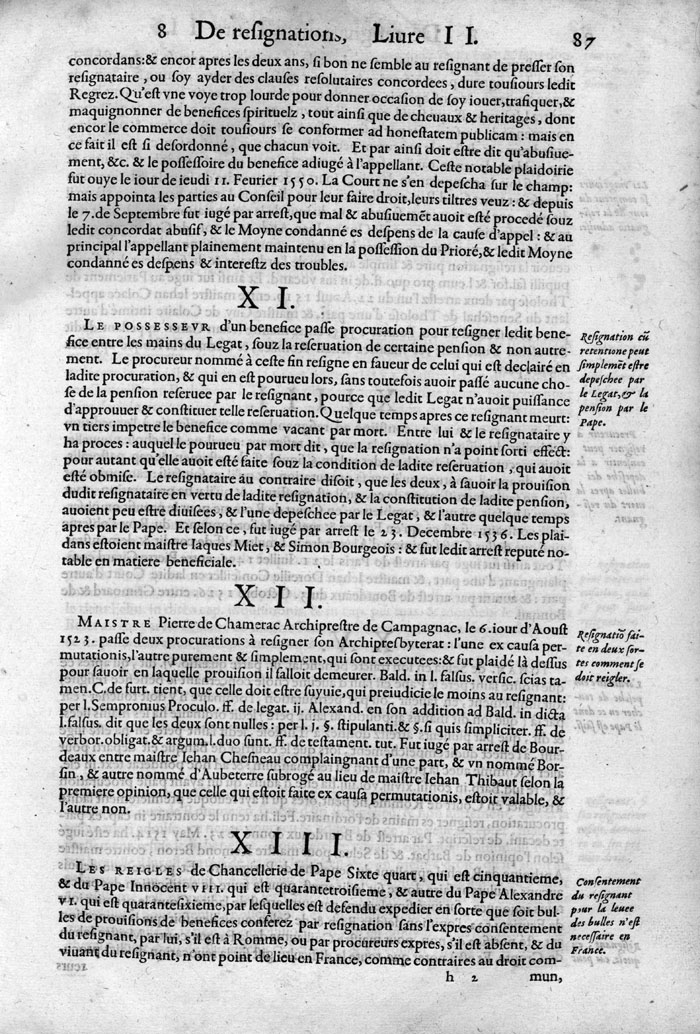 8 De reſignations, Liure II. 87
concordans:& encor apres les deux ans, ſi bon ne ſemble au reſignant de preſſer ſon
reſignataire, ou ſoy ayder des clauſes reſolutaires concordees, dure touſiours ledit
Regrez. Qu'eſt vne voye trop lourde pour donner occaſion de ſoy iouer,trafiquer,&
maquignonner de benefices ſpirituelz, tout ainſi que de cheuaux & heritages, dont
encor le commerce doit touſiours ſe conformer ad honeſtatem publicam : mais en
ce fait il eſt ſi deſordonné, que chacun voit. Et par ainſi doit eſtre dit qu'abuſiue-
ment, &c. & le poſſeſſoire du benefice adiugé à l'appellant. Ceſte notable plaidoirie
fut ouye le iour de ieudi 11. Feurier 1550. La Court ne s'en depeſcha ſur le champ:
mais appointa les parties au Conſeil pour leur faire droit,leurs tiltres veuz : & depuis
le 7. de Septembre fut iugé par arreſt, que mal & abuſiuemẽt auoit eſté procedé ſouz
ledit concordat abuſif, & le Moyne condanné es deſpens de la cauſe d'appel : & au
principal l'appellant plainement maintenu en la poſſeſſion du Prioré,& ledit Moyne
condanné es deſpens & intereſtz des troubles.
XI.
LE POSSESSEVR d'un benefice paſſe procuration pour reſigner ledit bene-
fice entre les mains du Legat, ſouz la reſeruation de certaine penſion & non autre-
ment. Le procureur nommé à ceſte fin reſigne en faueur de celui qui eſt declairé en
ladite procuration, & qui en eſt pourueu lors, ſans toutefois auoir paſſé aucune cho-
ſe de la penſion reſeruee par le reſignant, pource que ledit Legat n'auoit puiſſance
d'approuuer & conſtituer telle reſeruation. Quelque temps apres ce reſignant meurt:
vn tiers impetre le benefice comme vacant par mort. Entre lui & le reſignataire y
ha proces : auquel le pourueu par mort dit, que la reſignation n'a point ſorti effect:
pour autant qu'elle auoit eſté faite ſouz la condition de ladite reſeruation, qui auoit
eſté obmiſe. Le reſignataire au contraire diſoit, que les deux, à ſauoir la prouiſion
dudit reſignataire en vertu de ladite reſignation, & la conſtitution de ladite penſion,
auoient peu eſtre diuiſees, & l'une depeſchee par le Legat, & l'autre quelque temps
apres par le Pape. Et ſelon ce, fut iugé par arreſt le 23. Decembre 1536. Les plai-
dans eſtoient maiſtre Iaques Miet, & Simon Bourgeois : & fut ledit arreſt reputé no-
table en matiere beneficiale.
Reſignation cũ
retentione peut
ſimplemẽt eſtre
depeſchee par
le Legat,& la
penſion par le
Pape.
XII.
MAISTRE Pierre de Chamerac Archipreſtre de Campagnac, le 6. iour d'Aouſt
1523. paſſe deux procurations à reſigner ſon Archipreſbyterat : l'une ex cauſa per-
mutationis,l'autre purement & ſimplement,qui sont executees:& fut plaidé là deſſus
pour ſauoir en laquelle prouiſion il falloit demeurer. Bald. in l. falſus. verſic. ſcias ta-
men.C.de furt. tient, que celle doit eſtre ſuyuie,qui preiudicie le moins au reſignant:
per l. Sempronius Proculo. ff. de legat. ij. Alexand. en ſon addition ad Bald. in dicta
l.falſus. dit que les deux ſont nulles : per l. j. §. ſtipulanti.& §.ſi quis ſimpliciter. ff. de
verbor.obligat.& argum.l.duo ſunt. ff. de teſtament. tut. Fut iugé par arreſt de Bour-
deaux entre maiſtre Iehan Cheſneau complaingnant d'une part, & vn nommé Bor-
ſin, & autre nommé d'Aubeterre ſubrogé au lieu de maiſtre Iehan Thibaut ſelon la
premiere opinion, que celle qui eſtoit faite ex cauſa permutationis, eſtoit valable, &
l'autre non.
Reſignatiõ fai-
te en deux ſor-
tes comment ſe
doit reigler.
XIII.
LES REIGLES de Chancellerie de Pape Sixte quart, qui eſt cinquantieme,
& du Pape Innocent VIII. qui eſt quarantetroiſieme, & autre du Pape Alexandre
VI. qui eſt quaranteſixieme,par leſquelles eſt defendu expedier en ſorte que ſoit bul-
les de prouiſions de benefices conferez par reſignation ſans l'expres conſentement
du reſignant, par lui, s'il eſt à Romme, ou par procureurs expres, s'il eſt abſent, & du
viuant du reſignant, n'ont point de lieu en France, comme contraires au droit com-
Conſentement
du reſignant
pour la leuee
des bulles n'eſt
neceſſaire en
France.
h 2 mun,